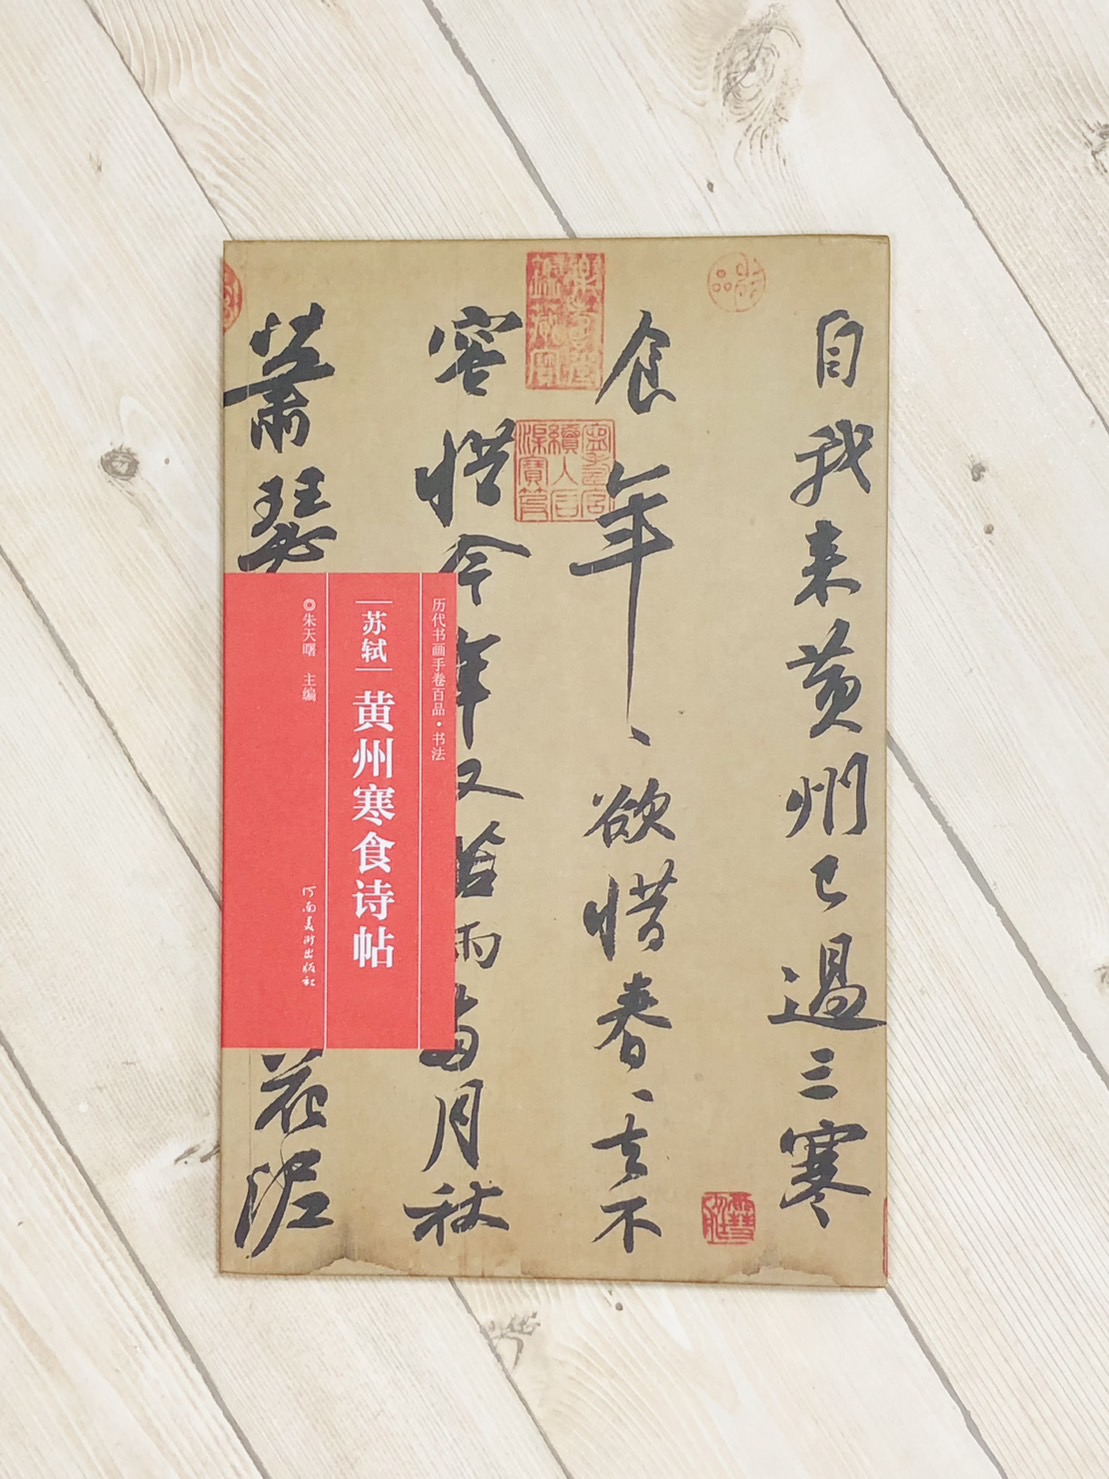 自我来黄州已過三寒
食年、欲惜春、去不
容惜今年又苦雨兩月秋
蕭瑟
花泥
寧壽宮
續入石
渠寶笈
历代书画手卷百品·书法
苏轼
黄州寒食诗帖
◎朱天曙 主编
河南美术出版社